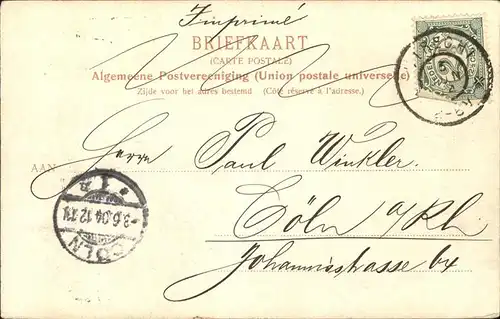 Imprimé
BRIEFKAART
(CARTE POSTALE)
Algemeene Postvereeniging (Union postale universelle)
Zijde voor het adres bestemd (Côté réservé à l'adresse.)
AAN Herrn Paul Winkler.
Cöln a/Rh
Johannisstrasse 64
CÖLN
1
-3.6.04.12-1N